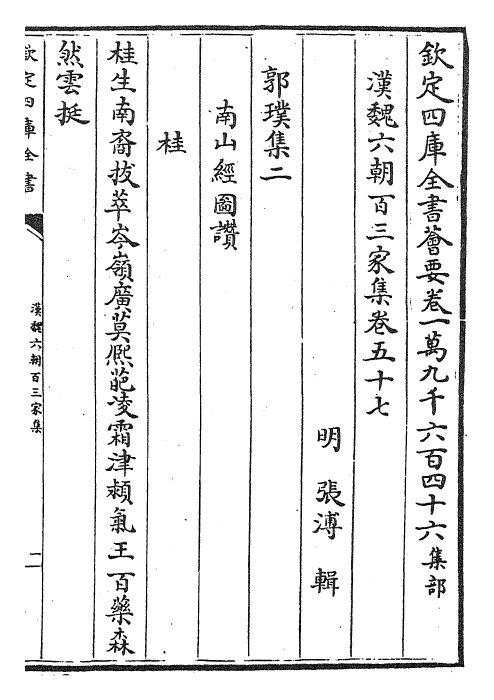 欽定四庫全書薈要卷一萬九千六百四十六集部
漢魏六朝百三家集卷五十七
明 張溥 輯
郭璞集二
南山經圖讚
桂
桂生南裔拔萃岑嶺廣莫熈葩凌霜津頬氣王百藥森
然雲挺
欽定四庫全書
漢魏六朝百三家集
二